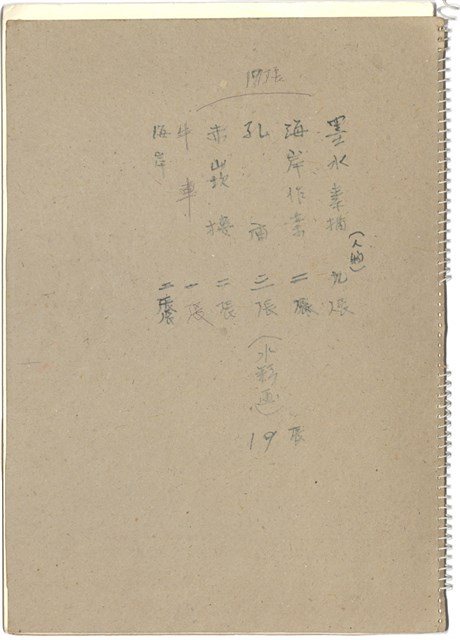 19張
墨水素描(人的) 九張
海岸作業 二張
孔廟 三張
赤崁樓 二張
牛車 一張
海岸 二張
(水彩画)
19張